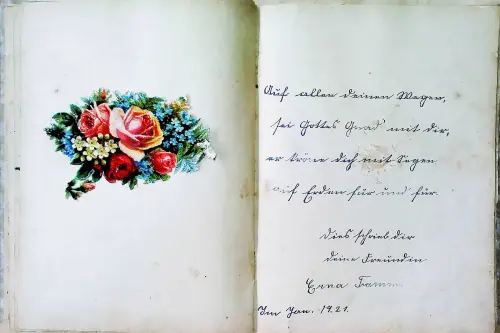 Auf allen deinen Wegen,
sei Gottes Gnad' mit dir,
er kröne dich mit Segen
auf Erden für und für.
Dies schrieb dir
deine Freundin
Erna
Im Jan. 1921.